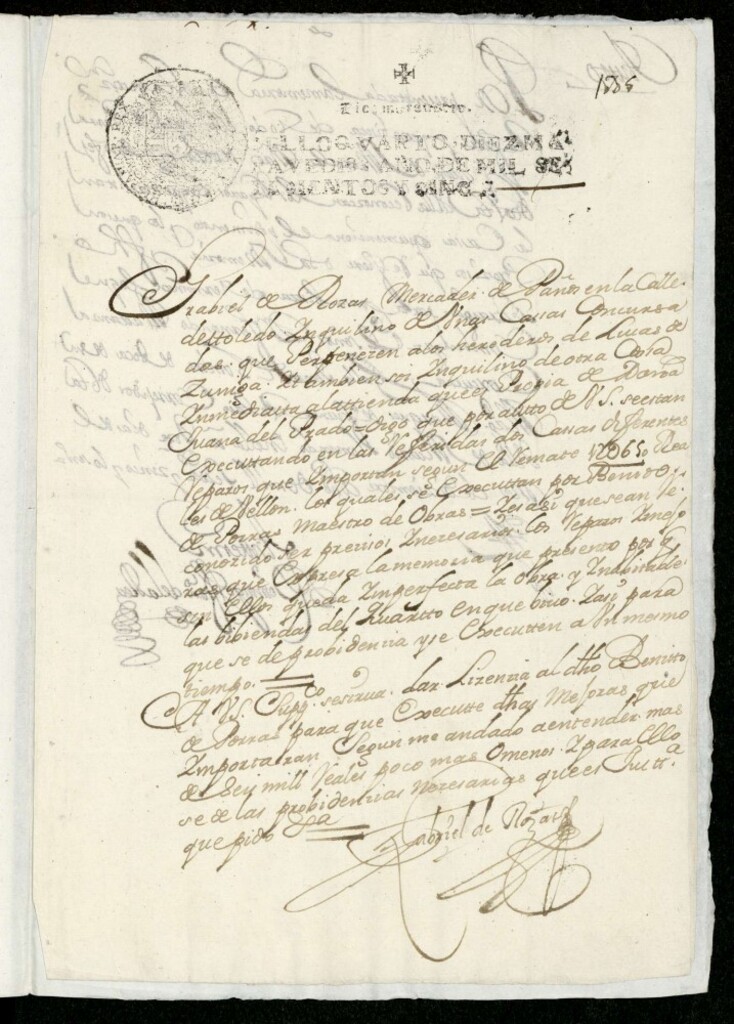 1705
SELLO QVARTO, DIEZ MA
RAVEDIS, AÑO DE MIL SE
TECIENTOS Y CINCO.
Gabriel de Rozas Mercader de Paños en la Calle
de toledo Ynquilino de Unas Cassas Concursa
das, que Pertenezen a los herederos de Lucas de
Zuniga. Y tambien soi Ynquilino de otra Cassa
Ynmediatta a la ttienda que es Propia de Doña
Juana del Prado = digo que por autto de V.S. se estan
Executtando en las Refferidas dos Cassas differentes
Reparos que Ymportan segun el Remate 12065 Rea
les de Vellon. los quales se Executtan por Benito
de Porras Maestro de Obras = Y es asi que sean Re
conozido ser precisos Y nezesarios los Reparos Y mejo
ras que Expresa la memoria que presento por q
sin Ellos queda Ymperfecta la Obra. y Ynabitable
las bibiendas del Quartto en que bibo. Y asi para
que se de probidencia y se Executten a Un mismo
tiempo.
A V.S. Suppco. se sirva dar Lizencia al dho Benitto
de Porras para que Executte dhas Mejoras que
Ymportaran Segun me an dado a entender mas
de Seis mill Reales poco mas o menos. Y para Ello
se de las probidencias Nezesarias que es Justta.
que pido &a
Gabriel de Rozas